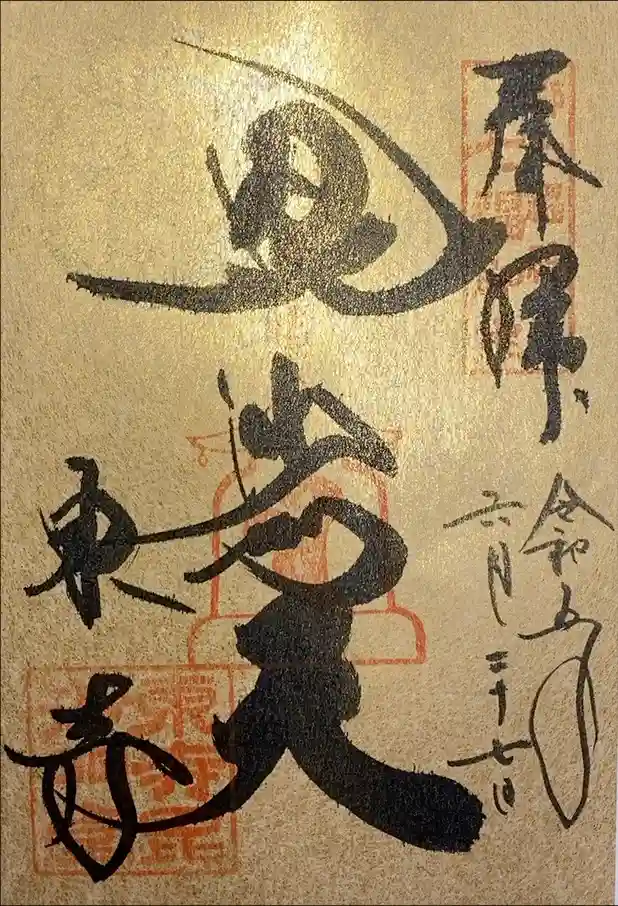 奉拝
令和五年
六月二十七日
毘沙門天
東寺